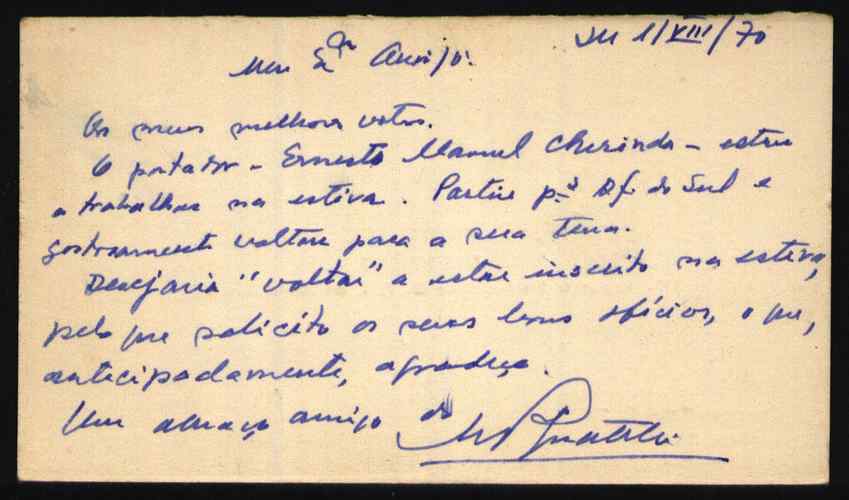 1/VIII/70
Meu Exº Amigo:
Os meus melhores votos.
O portador – Ernesto Manuel Cherinda – esteve
a trabalhar na estiva. Partiu p.ª Áf. do Sul e
gostosamente voltou para a sua terra.
Desejaria "voltar" a estar inscrito na estiva,
pelo que solicito os seus bons ofícios, o que,
antecipadamente, agradeço.
Um abraço amigo do